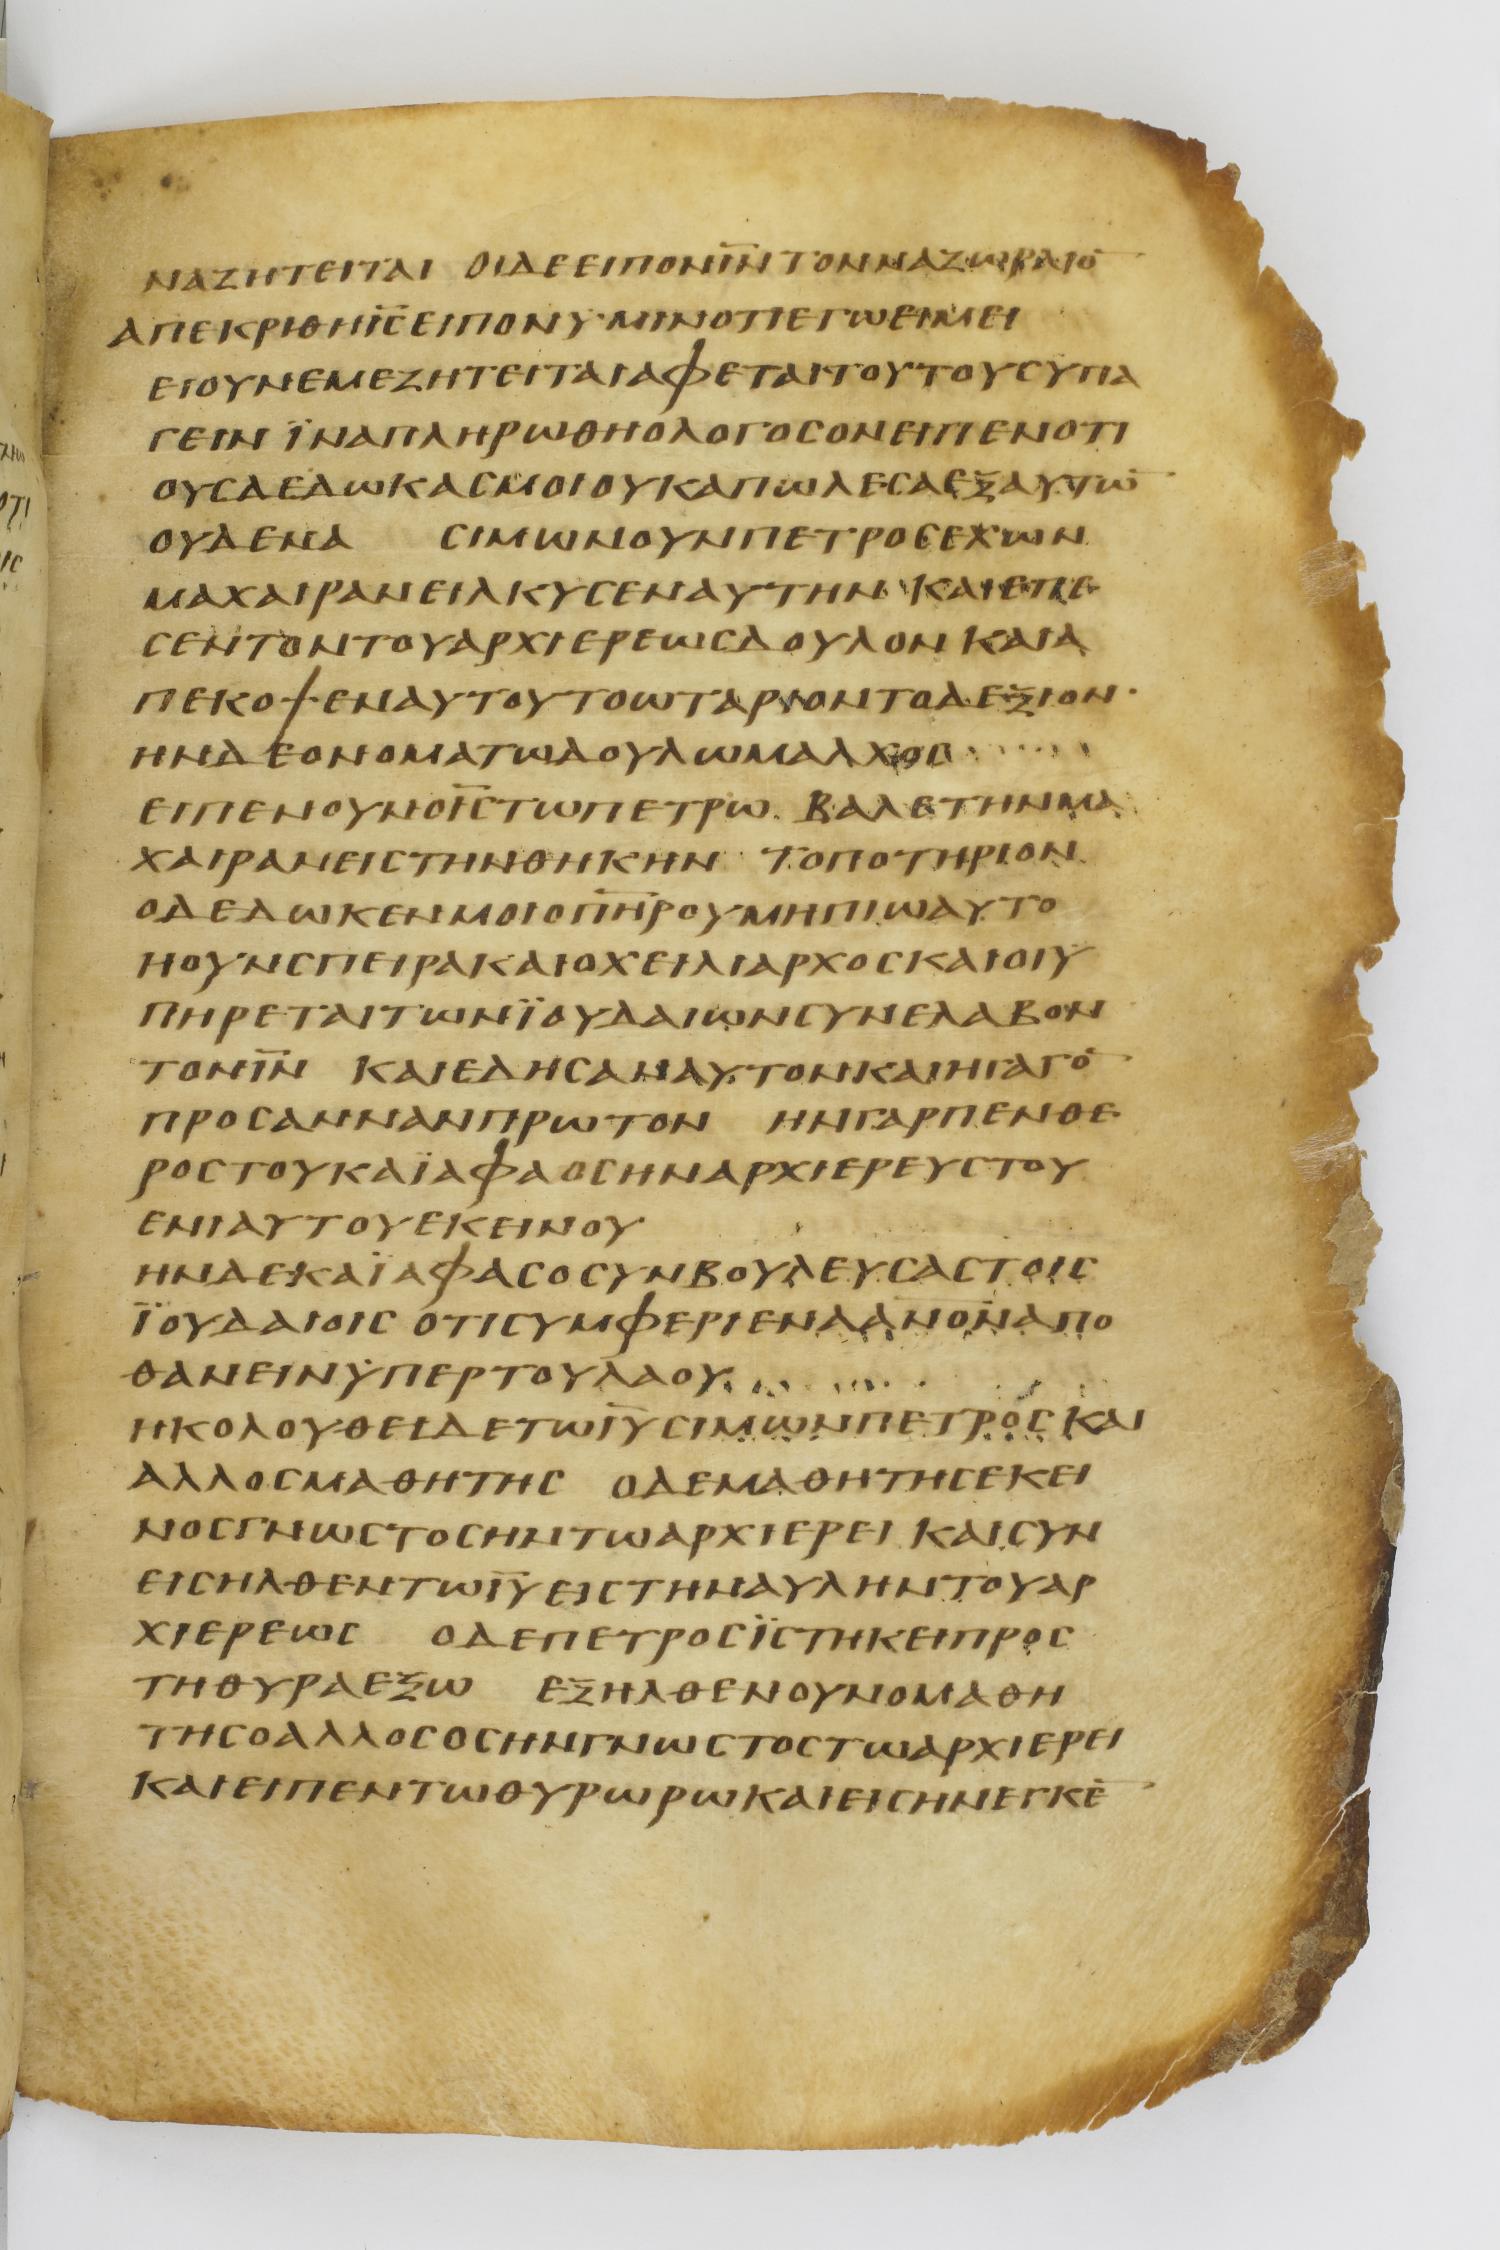 ΝΑΖΗΤΕΙΤΑΙ ΟΙΔΕΕΙΠΟΝΙ̅Ν̅ΤΟΝΝΑΖΩΡΑΙΟ̅
ΑΠΕΚΡΙΘΗΙ̅C̅ΕΙΠΟΝΥΜΙΝΟΤΙΕΓΩΕΙΜΕΙ
ΕΙΟΥΝΕΜΕΖΗΤΕΙΤΑΙΑΦΕΤΑΙΤΟΥΤΟΥCΥΠΑ
ΓΕΙΝ ΪΝΑΠΛΗΡΩΘΗΟΛΟΓΟCΟΝΕΙΠΕΝΟΤΙ
ΟΥCΔΕΔΩΚΑCΜΟΙΟΥΚΑΠΩΛΕCΑΕΞΑΥΤΩ̅
ΟΥΔΕΝΑ CΙΜΩΝΟΥΝΠΕΤΡΟCΕΧΩΝ
ΜΑΧΑΙΡΑΝΕΙΛΚΥCΕΝΑΥΤΗΝ ΚΑΙΕΠΕ
CΕΝΤΟΝΤΟΥΑΡΧΙΕΡΕΩCΔΟΥΛΟΝ ΚΑΙΑ
ΠΕΚΟΨΕΝΑΥΤΟΥΤΟΩΤΑΡΙΟΝΤΟΔΕΞΙΟΝ·
ΗΝΔΕΟΝΟΜΑΤΩΔΟΥΛΩΜΑΛΧΟC
ΕΙΠΕΝΟΥΝΟΙ̅C̅ΤΩΠΕΤΡΩ. ΒΑΛΕΤΗΝΜΑ
ΧΑΙΡΑΝΕΙCΤΗΝΘΗΚΗΝ ΤΟΠΟΤΗΡΙΟΝ
ΟΔΕΔΩΚΕΝΜΟΙΟΠ̅Η̅Ρ̅ΟΥΜΗΠΙΩΑΥΤΟ
ΗΟΥΝCΠΕΙΡΑΚΑΙΟΧΕΙΛΙΑΡΧΟCΚΑΙΟΙΥ
ΠΗΡΕΤΑΙΤΩΝΪΟΥΔΑΙΩΝCΥΝΕΛΑΒΟΝ
ΤΟΝΙ̅Ν̅ ΚΑΙΕΔΗCΑΝΑΥΤΟΝΚΑΙΗΓΑΓΟ̅
ΠΡΟCΑΝΝΑΝΠΡΩΤΟΝ ΗΝΓΑΡΠΕΝΘΕ
ΡΟCΤΟΥΚΑΪΑΦΑΟCΗΝΑΡΧΙΕΡΕΥCΤΟΥ
ΕΝΙΑΥΤΟΥΕΚΕΙΝΟΥ
ΗΝΔΕΚΑΪΑΦΑCΟCΥΝΒΟΥΛΕΥCΑCΤΟΙC
ΪΟΥΔΑΙΟΙC ΟΤΙCΥΜΦΕΡΙΕΝΑΑ̅Ν̅Ο̅Ν̅ΑΠΟ
ΘΑΝΕΙΝΫΠΕΡΤΟΥΛΑΟΥ
ΗΚΟΛΟΥΘΕΙΔΕΤΩΙ̅Υ̅CΙΜΩΝΠΕΤΡΟC ΚΑΙ
ΑΛΛΟCΜΑΘΗΤΗC ΟΔΕΜΑΘΗΤΗCΕΚΕΙ
ΝΟCΓΝΩCΤΟCΗΝΤΩΑΡΧΙΕΡΕΙ ΚΑΙCΥΝ
ΕΙCΗΛΘΕΝΤΩΙ̅Υ̅ΕΙCΤΗΝΑΥΛΗΝΤΟΥΑΡ
ΧΙΕΡΕΩC ΟΔΕΠΕΤΡΟCΪCΤΗΚΕΙΠΡΟC
ΤΗΘΥΡΑΕΞΩ ΕΞΗΛΘΕΝΟΥΝΟΜΑΘΗ
ΤΗCΟΑΛΛΟCΟCΗΝΓΝΩCΤΟCΤΩΑΡΧΙΕΡΕΙ
ΚΑΙΕΙΠΕΝΤΩΘΥΡΩΡΩΚΑΙΕΙCΗΝΕΓΚΕ̅